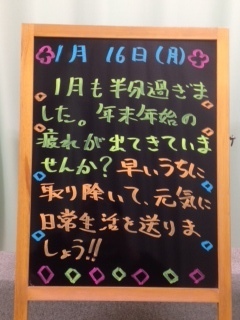 1月 16日(月)
1月も半分過ぎま
した。年末年始の
疲れが出てきていま
せんか?早いうちに
取り除いて、元気に
日常生活を送りま
しょう!!